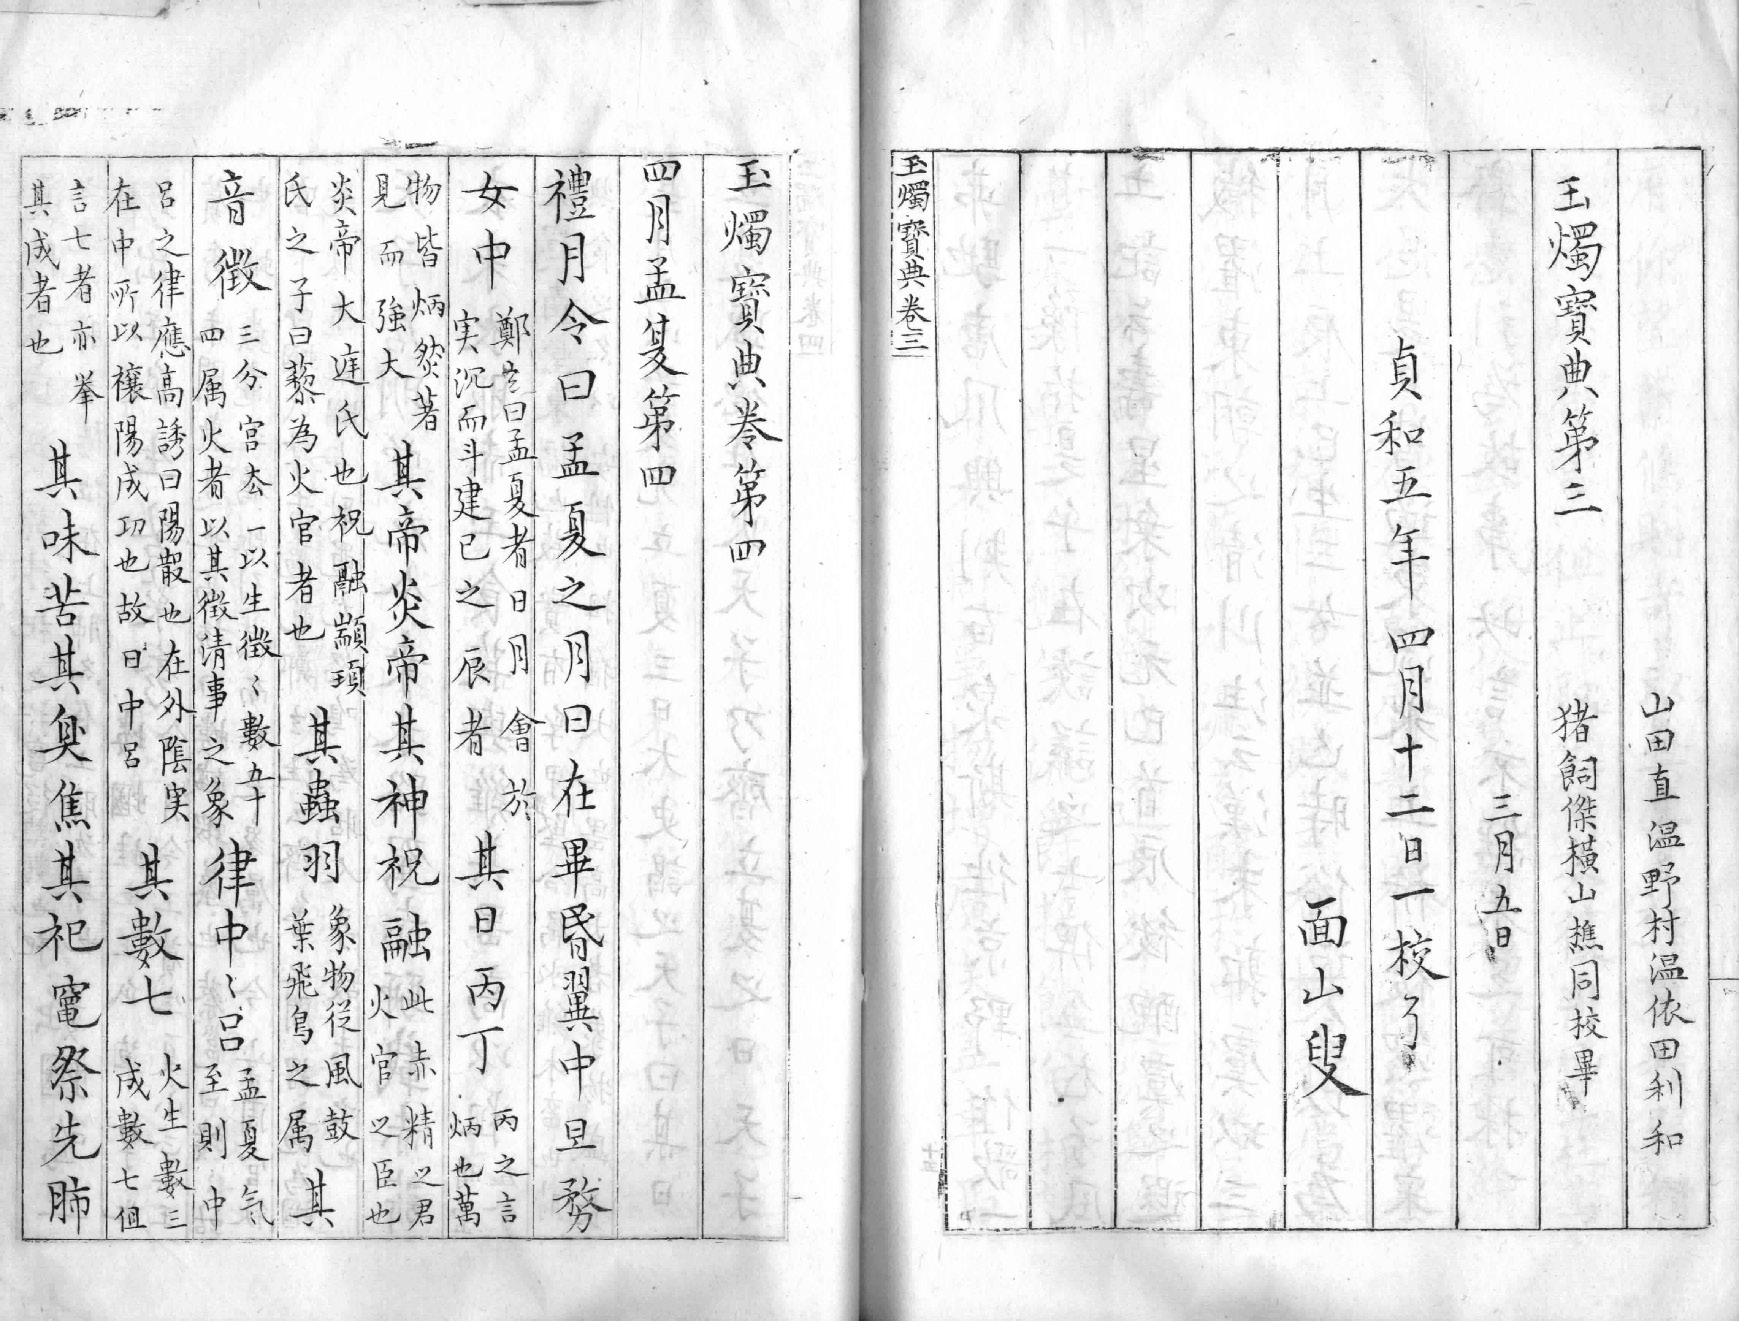 山田直温野村温依田利和
玉燭寶典第三 猪飼傑横山樵同校畢
三月五日
貞和五年四月十二日一校了
面山叟
玉燭寶典卷三
玉燭寶典卷第四
四月孟夏第四
禮月令曰孟夏之月日在畢昏翼中旦務
女中 鄭玄曰孟夏者日月會於実沉而斗建巳之辰者 其日丙丁 丙之言炳也萬
物皆炳然著見而強大 其帝炎帝其神祝融 此赤精之君火官之臣也
炎帝大庭氏也祝融顓頊氏之子曰藜為火官者也 其蟲羽 象物從風鼓葉飛鳥之属 其
音徵 三分宮去一以生徵〻數五十四属火者以其徵清事之象 律中〻呂 孟夏氣至則中
呂之律應高誘曰陽散也在外陰実在中所以禳陽成功也故曰中呂 其數七 火生數三成數七但
言七者亦挙其成者也 其味苦其臭焦其祀竈祭先肺